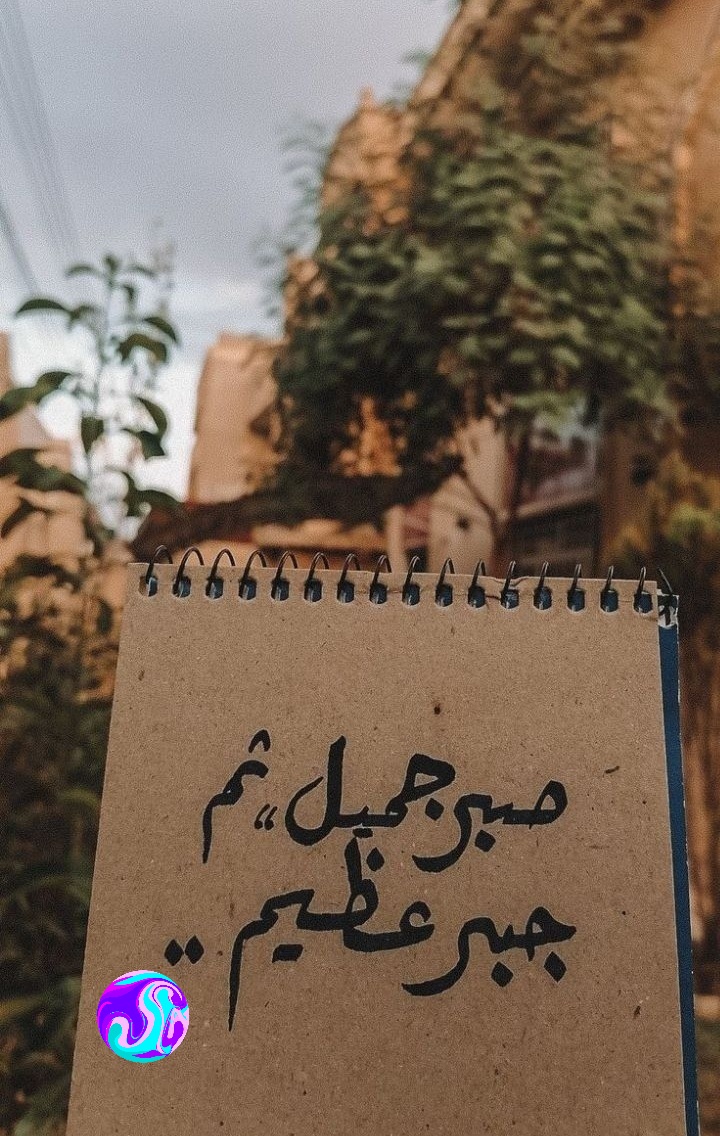 صبر جميل ،، ثم
جبر عظيم ..